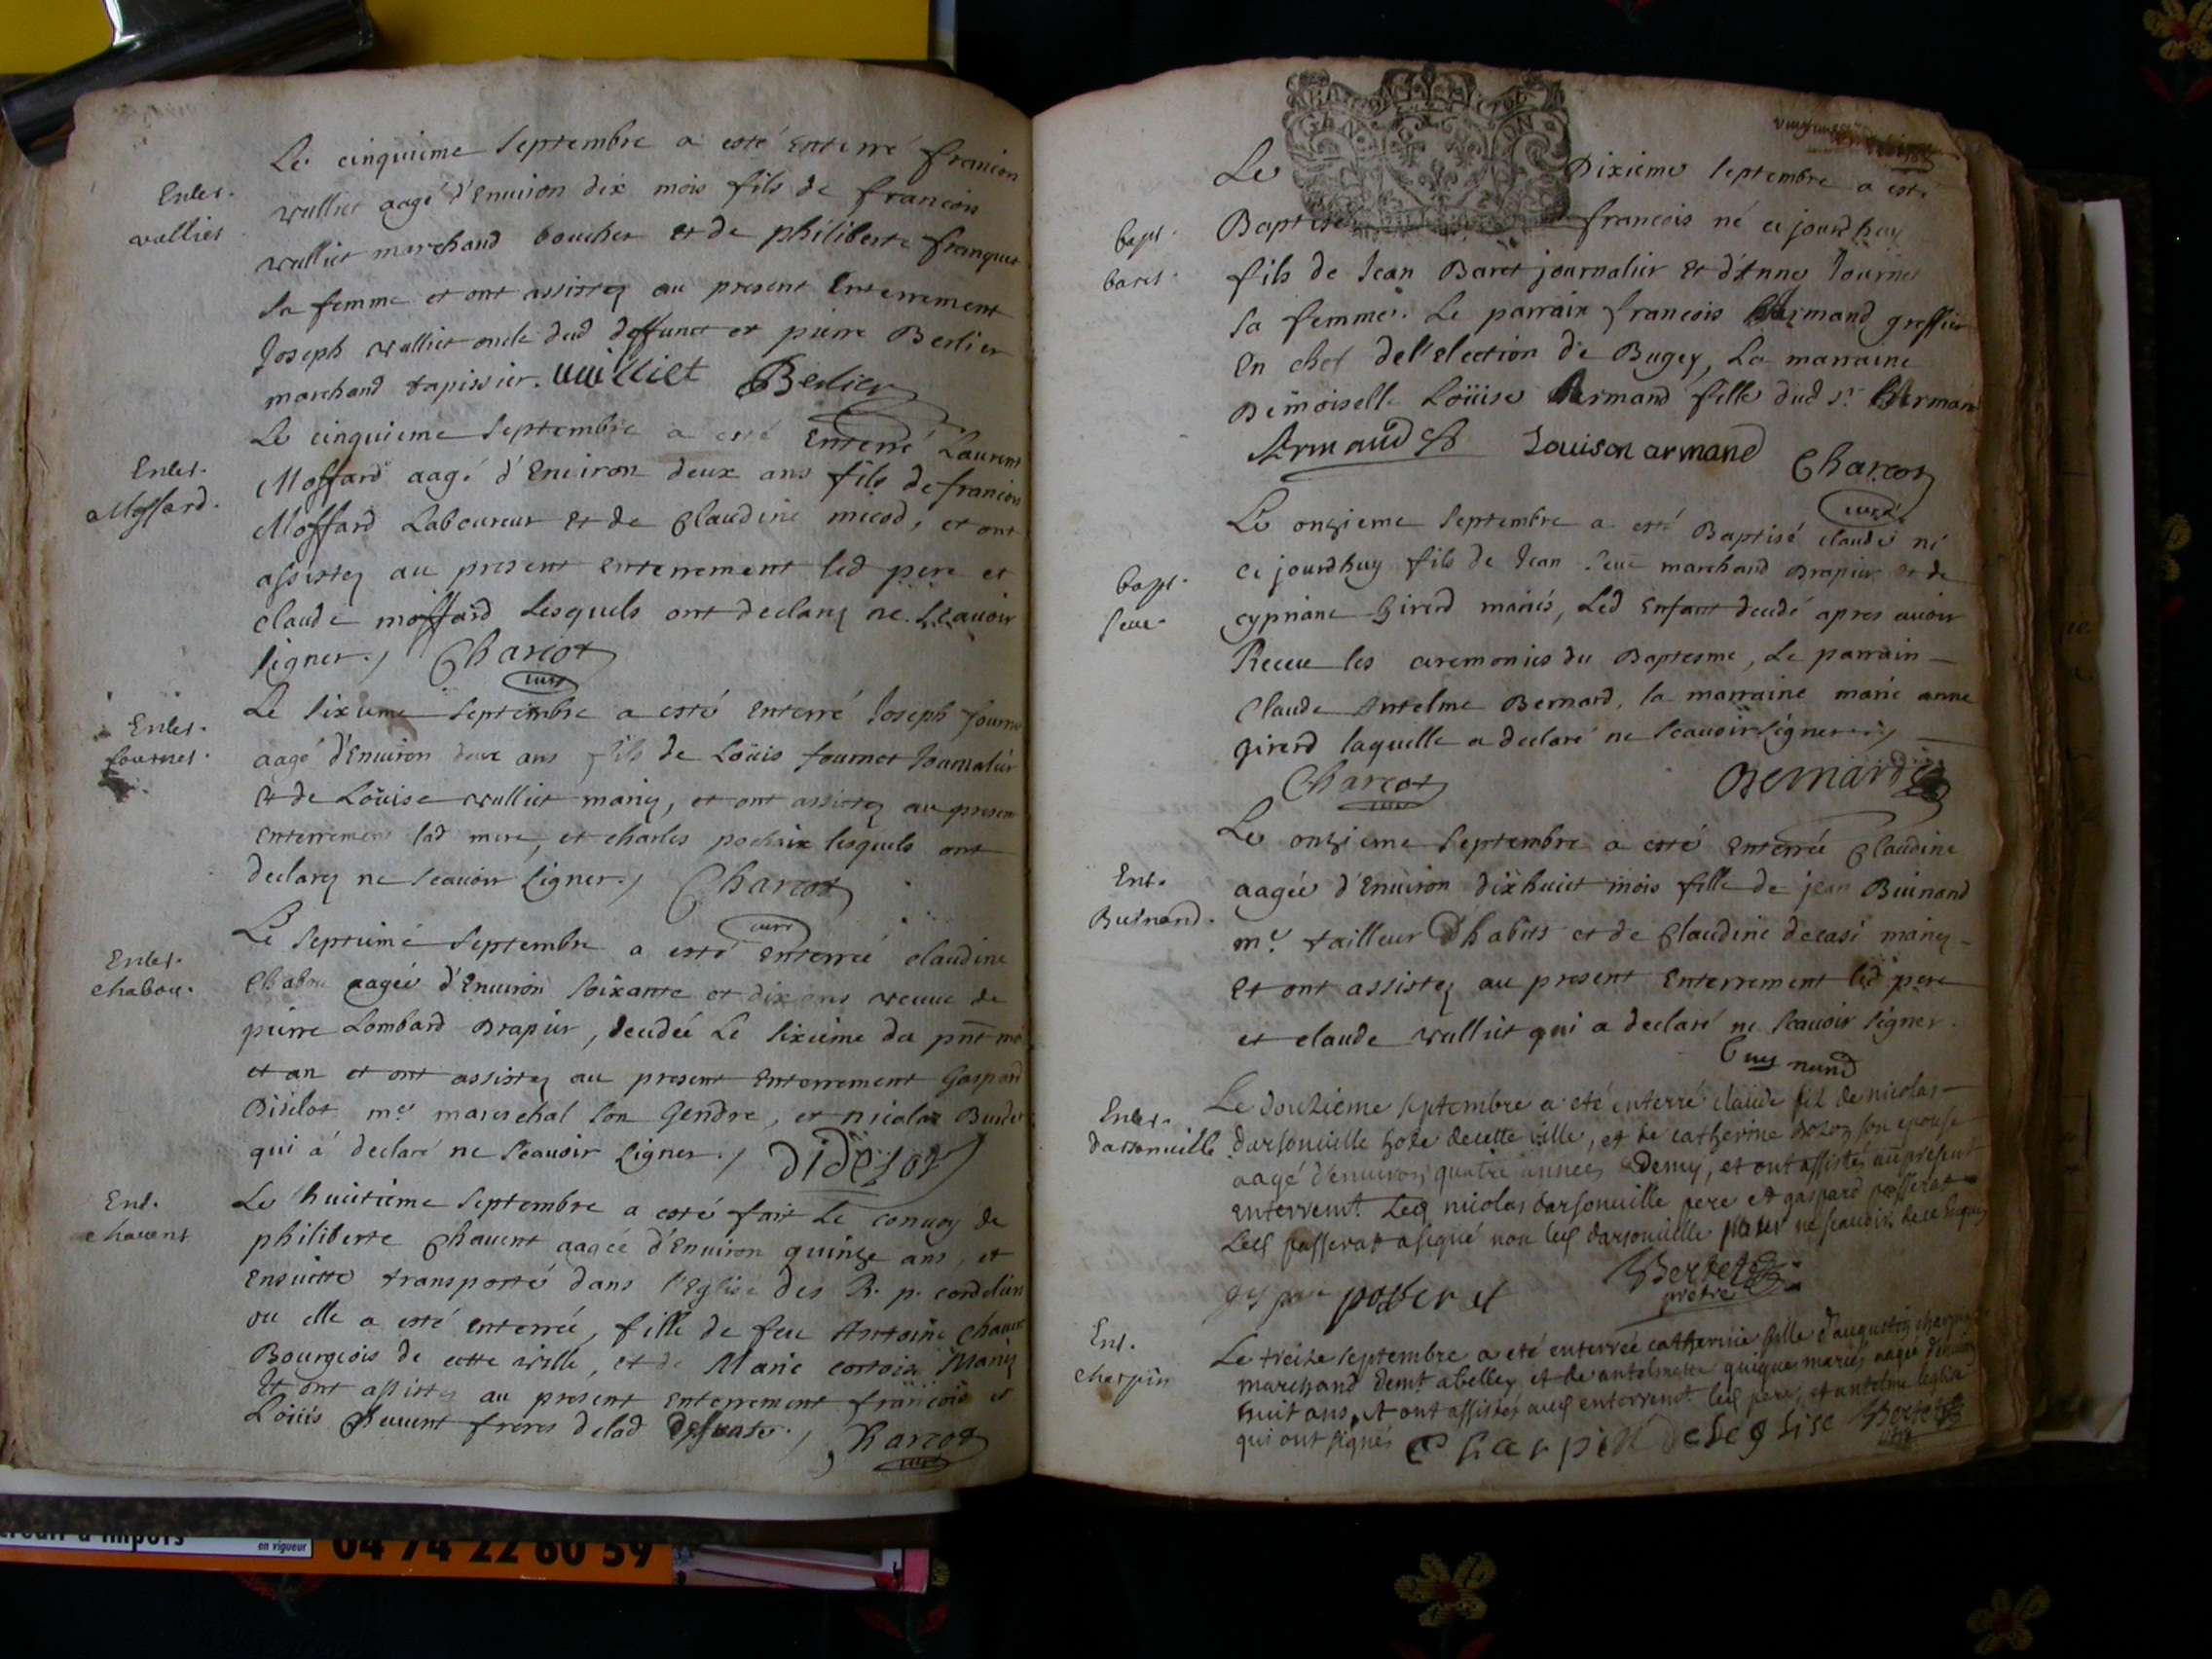 Le cinquieme septembre a esté enterré francois
vullier aagé d'enuiron dix mois fils de francois
vullier marchand boucher et de philiberte franquet
sa femme et ont assistez au present enterrement
Joseph vullier oncle dud deffunct et pierre Berlier
marchand tapissier. vuilliet Berlier
Enter.
vullier
Le cinquieme septembre a esté enterré Laurent
Moffard aagé d'enuiron deux ans fils de francois
Moffard Laboureur et de Claudine micod, et ont
assistez au present enterrement led pere et
claude moffard Lesquels ont declarez ne scauoir
signer. Charcot
curé
Enter.
Moffard.
Le sixieme septembre a esté enterré Joseph fournet
aagé d'enuiron deux ans fils de Loüis fournet Journalier
et de Loüise vullier mariez, et ont assistez au present
enterrement lad mere, et charles pochaix lesquels ont
declarez ne scauoir signer. Charcot
curé
Enter.
fournet.
Le septieme septembre a esté enterrée claudine
Chabou aagée d'enuiron soixante et dix ans veuue de
pierre Lombard Drapier, decedée Le sixieme du pnt mois
et an et ont assistez au present enterrement Gaspard
Didelot me mareschal son Gendre, et nicolas
qui a declaré ne scauoir signer. didelot
Enter.
chabou.
Le huitieme septembre a esté fait Le conuoy de
philiberte Chauent aagée d'enuiron quinze ans, et
ensuitte transporté dans l'Eglise des R. p. cordeliers
ou elle a esté enterrée, fille de feu Antoine Chauent
Bourgeois de cette ville, et de Marie cortois Mariez
Et ont assistez au present enterrement francois et
Loüis Chauent freres delad deffunte. Charcot
curé
Ent.
chauent
Le Dixieme septembre a esté
Baptisé francois né ce jourdhuy
fils de Jean Baret journalier et d'Anne fournet
sa femme. Le parrain francois Armand greffier
en chef de l'election de Bugey, La marraine
Demoiselle Loüise Armand fille dud sr. Armand
Armaud Louison armand Charcot
curé
bapt.
baret.
Le onzieme septembre a esté Baptisé claude né
ce jourdhuy fils de Jean seue marchand Drapier et de
cypriane Girerd mariés, Led enfant decedé apres auoir
Receu les ceremonies du Baptesme, Le parrain
Claude Antelme Bernard, la marraine marie anne
girerd laquelle a declaré ne scauoir signer
Charcot Bernard
curé
bapt.
seue.
Le onzieme septembre a esté enterrée Claudine
aagée d'enuiron dixhuict mois fille de jean Buinand
me. tailleur d'habits et de Claudine decasi mariez
Et ont assistez au present enterrement led pere
et claude vullier qui a declaré ne scauoir signer.
Buynand
Ent.
Buinand.
Le douzieme septembre a eté enterré claude fil de nicolas
darsonuille hote decette ville, et de catherine bozon son epouse
aagé d'enuiron quatre annees & demy, et ont assistés au present
enterremt. Led nicolas darsonuille pere et gaspard passerat
Led passerat a signé non led darsonuille pour ne scauoir
passerat Bertet
pretre
Enter.
Darsonuille
Le treize septembre a eté enterrée catherine fille d'augustin cherpin
marchand demt. abelley et de antelmette guigue mariés aagée d'enuiron
huit ans, et ont assistés aud enterremt. led pere, et antelme leglise
qui ont signés Charpin deleglise Bertet
Ent.
cherpin
en vigueur
04 74 22 60 59